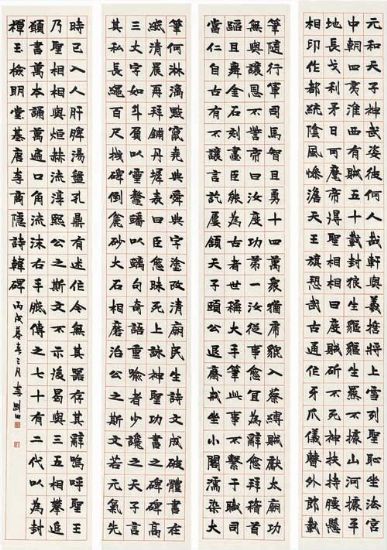 元和天子神武姿彼何人哉軒與羲誓將上雪列聖恥坐法宮
中朝四夷淮西有賊五十載封狼生貙貙生羆不據山河據平
地長戈利矛日可麾帝得聖相相曰度賊斫不死神扶持腰懸
相印作都統陰風慘澹天王旗愬武古通作牙爪儀曹外郎載
筆隨行軍司馬智且勇十四萬眾猶虎貔入蔡縛賊獻太廟功
無與讓恩不訾帝曰汝度功第一汝從事愈宜為辭愈拜稽首
蹈且舞金石刻畫臣能為古者世稱大手筆此事不繫于職司
當仁自古有不讓言訖屢頷天子頤公退齋戒坐小閣濡染大
筆何淋漓點竄堯典舜典字塗改清廟民生詩文成破體書在
紙清晨再拜鋪丹墀表曰臣愈昧死上詠神聖功書之碑碑高
三丈字如斗負以靈鼇蟠以螭句奇語重喻者少讒之天子言
其私長繩百尺拽碑倒麤砂大石相磨治公之斯文若元氣先
時已入人肝脾湯盤孔鼎有述作今無其器存其辭嗚呼聖皇
乃聖相相與烜赫流淳熙公之斯文不示後曷與三五相攀追
願書萬本誦萬遍口角流沫右手胝傳之七十有二代以為封
禪玉檢明堂基唐李商隱詩韓碑丙戌暮春三月李剛田